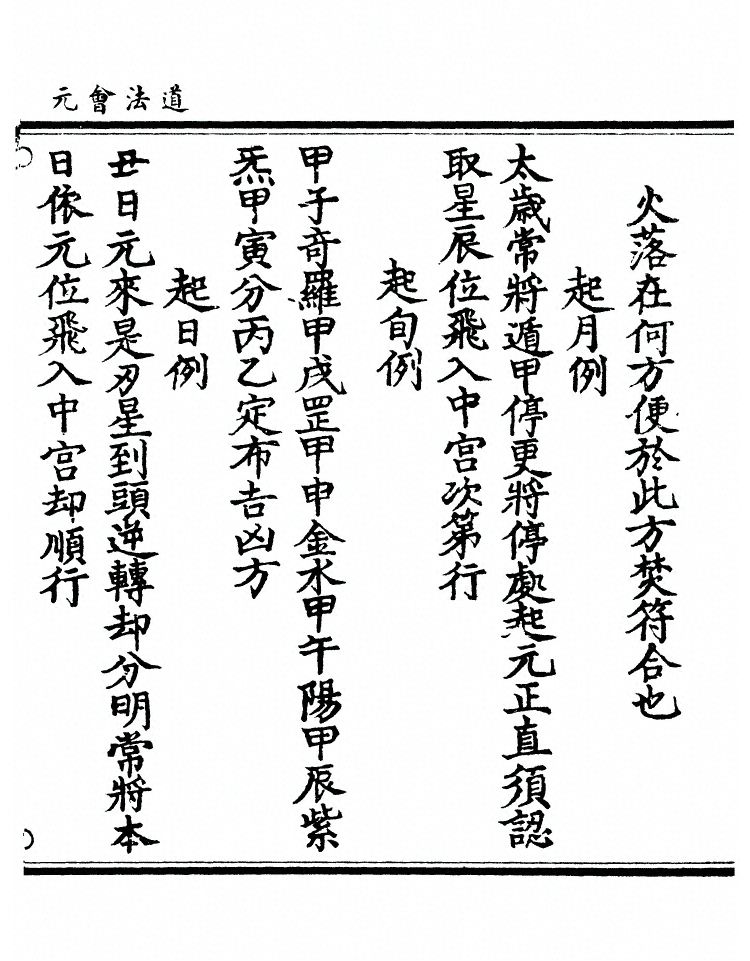 道法會元
火落在何方便於此方焚符合也
起月例
太歲常將遁甲停更將停處起元正直須認
取星辰位飛入中宮次第行
起旬例
甲子奇羅甲戌罡甲申金水甲午陽甲辰紫
炁甲寅分丙乙定布吉凶方
起日例
丑日元來是刃星到頭逆轉却分明常將本
日依元位飛入中宮却順行